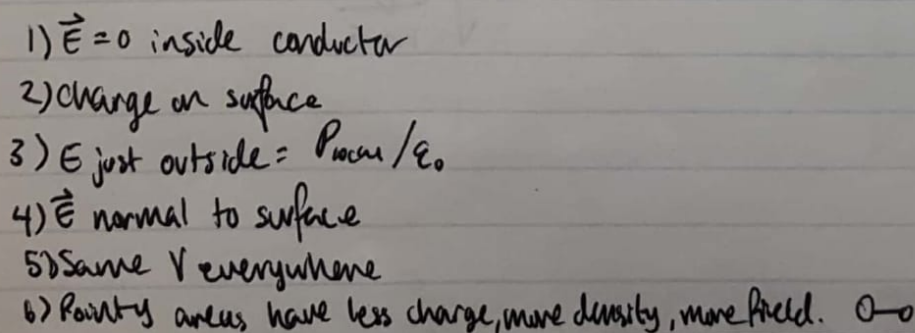 1) E⃗ = 0 inside conductor
2) Charge on surface
3) E just outside = P_local / ε₀
4) E⃗ normal to surface
5) Same V everywhere
6) Pointy areas have less charge, more density, more field.